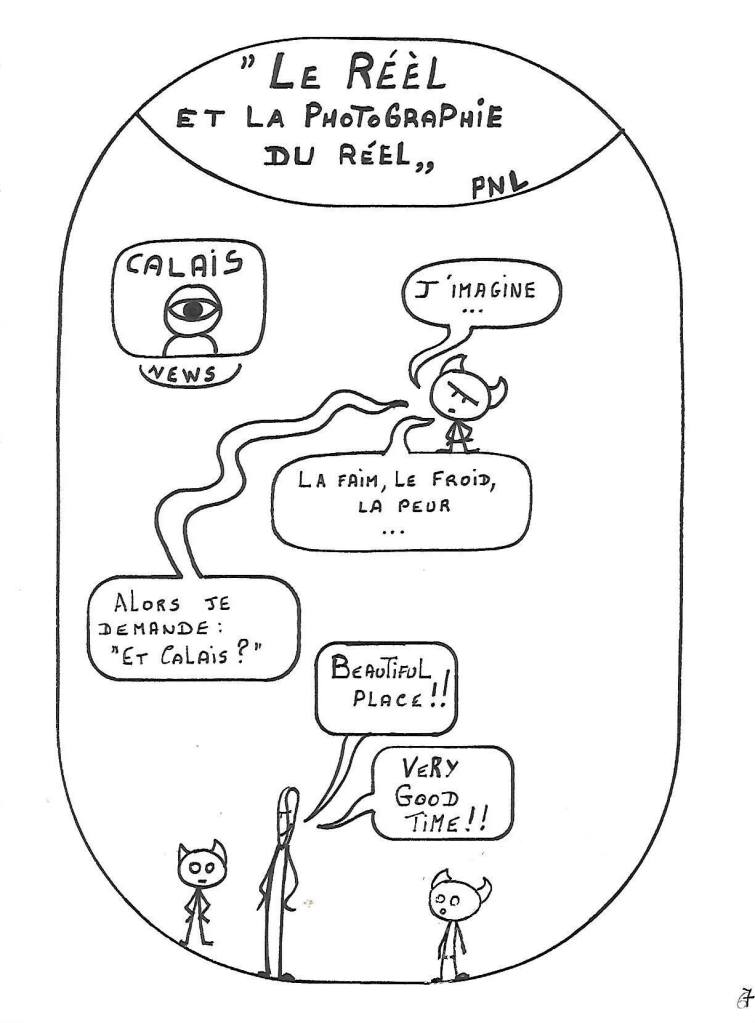 " LE RÉÈL
ET LA PHOTOGRAPHIE
DU RÉEL „
PNL
CALAIS
NEWS
J'IMAGINE
...
LA FAIM, LE FROID,
LA PEUR
...
ALORS JE
DEMANDE :
"ET CALAIS ? "
BEAUTIFUL
PLACE !!
VERY
GOOD
TIME !!
7